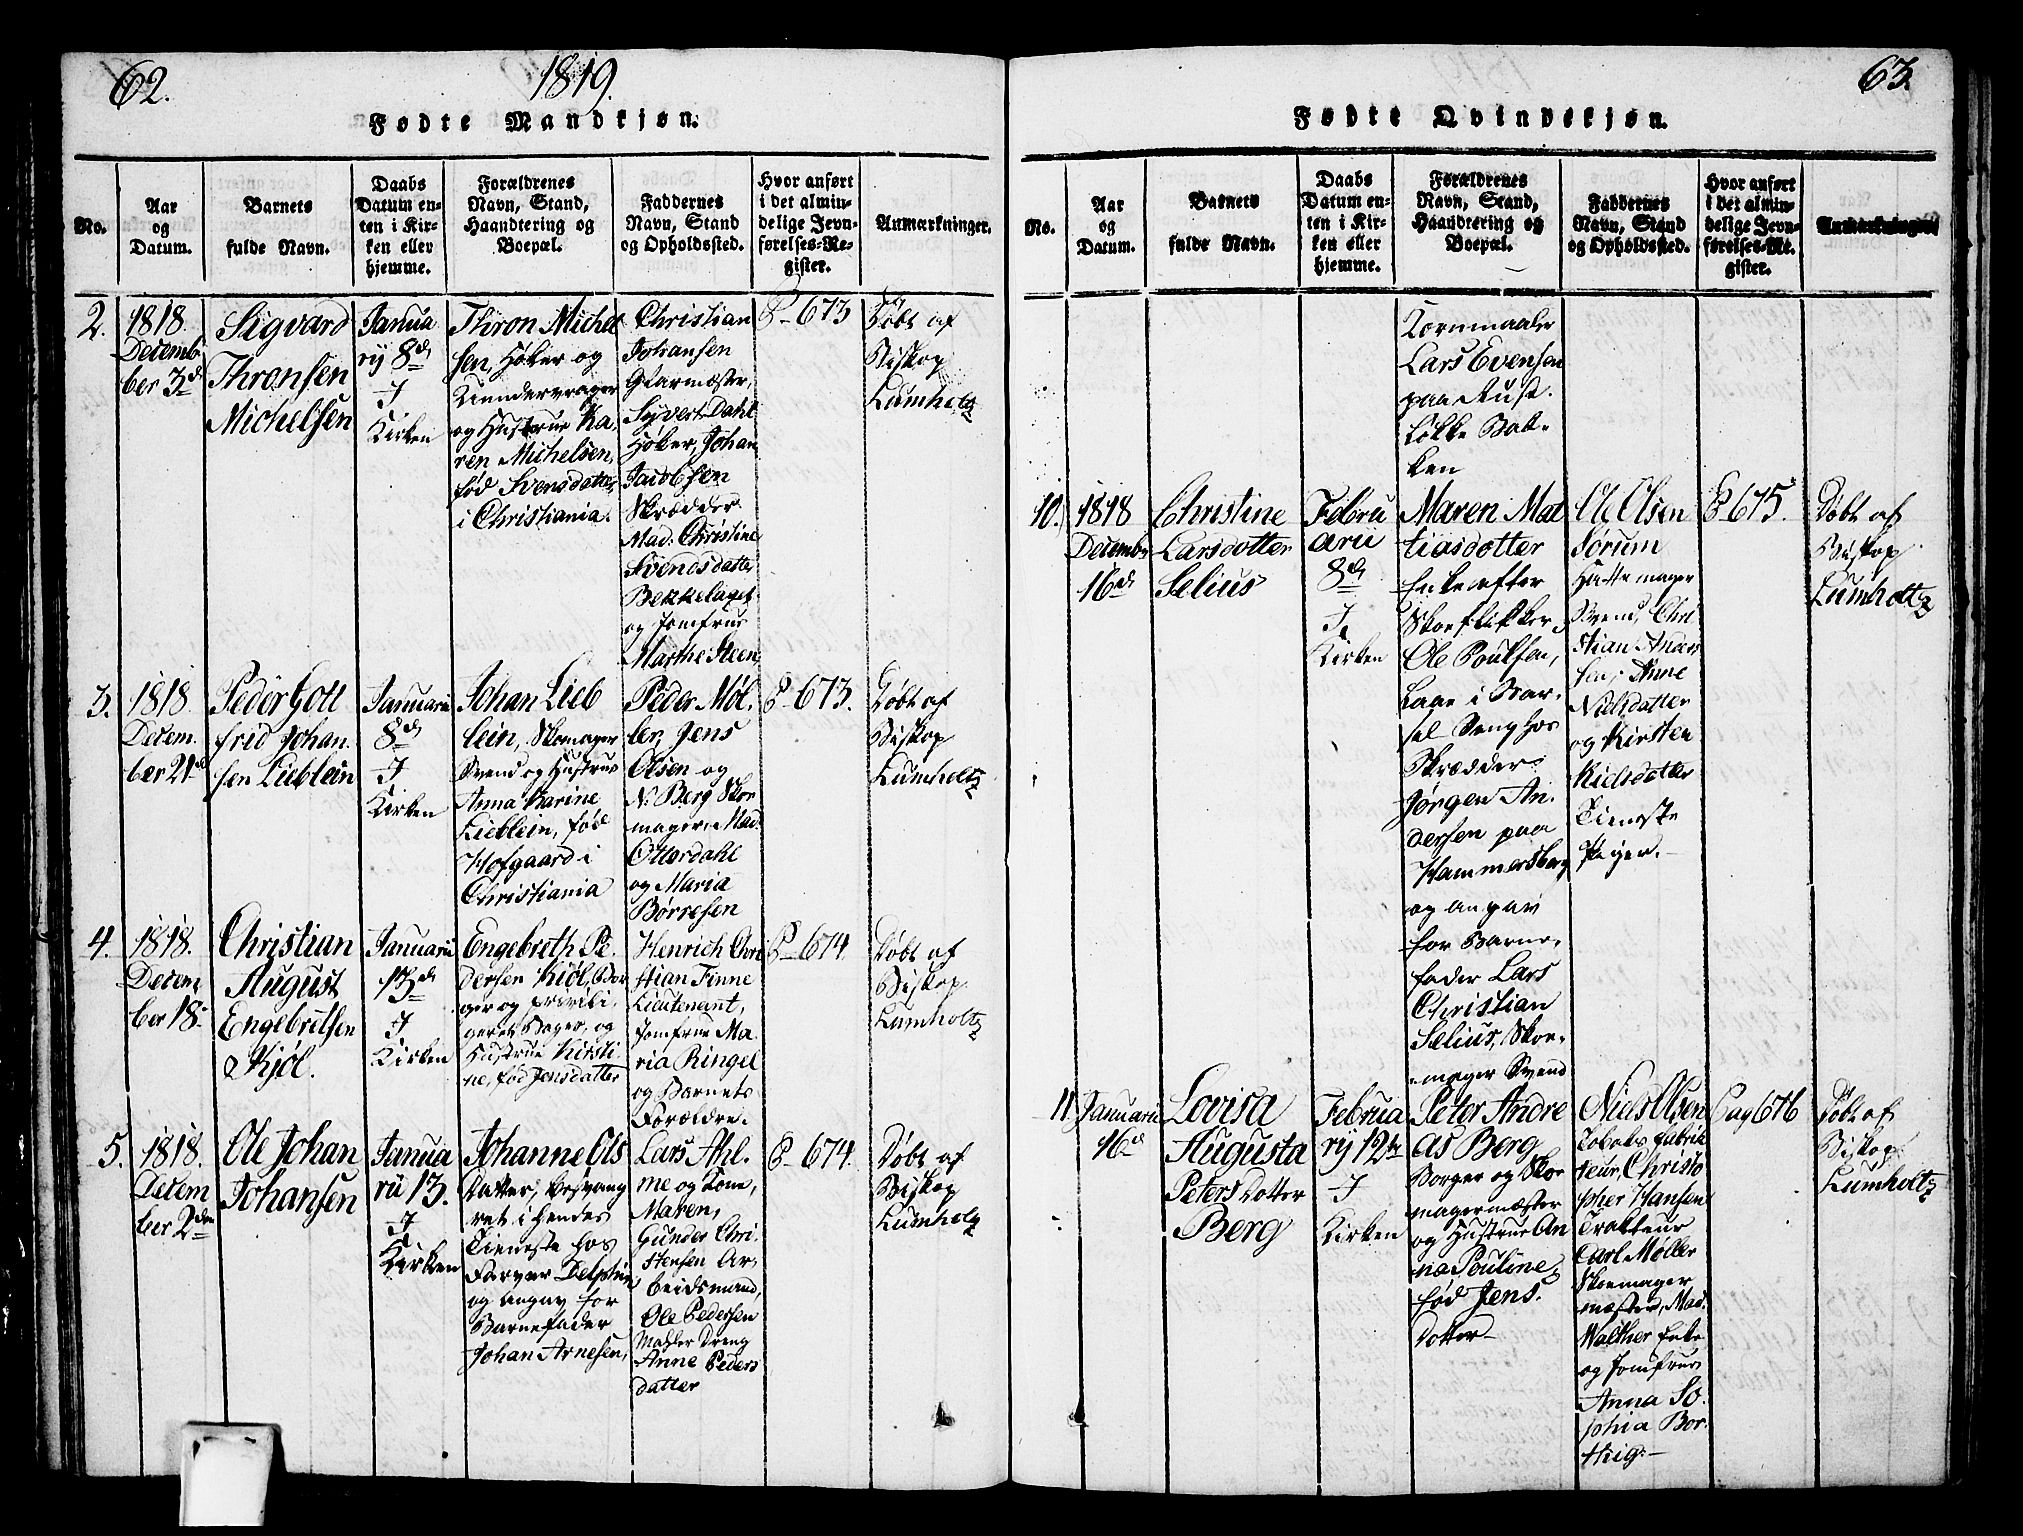 62.
1819.
Fødte Mandkjøn.
No.
Aar
og
Datum.
Barnets
fulde Navn.
Daabs
Datum en-
ten i Kir-
ken eller
hjemme.
Forældrenes
Navn, Stand,
Haandtering og
Boepæl.
Faddernes
Navn, Stand
og Opholdssted.
Hvor anført
i det almin-
delige Jevn-
førelses-Re-
gister.
Anmærkninger.
2.
1818.
Decemb
ber 3d
Sigvard
Thronsen
Michelsen
Janua
rÿ 8de
I
Kirken
Thron Michel
sen, Høker og
og Hustrue Ka
ren Michelsen,
fød Svensdatter
i Christiania.
Christian
Johansen
Glarmester,
Syvert Dahl
Høker, Johan
Jacobsen
Skrædder
Mad. Christine
Svendsdatter
Bekkelaget
og Jomfrue
Marthe Steen
P-673
Døbt af
Biskop
Lumholtz
3.
1818
Decem.
ber 21de
Peder Gott
frid Johan.
sen Lieblein
Januarii
8de
I
Kirken
Johan Lieb
lein, Skomager
Svend og Hustrue
Anna Karine
Lieblein, fød
Hofgaard i
Christiania
Peder Møl.
ler, Jens
Olsen og
N. Berg Skoe
mager, Mad.
Otterdahl
og Maria
Børresen
P-673.
Døbt af
Biskop
Lumholtz
4.
1818.
Decem
ber 18
Christian
August
Engebretsen
Kjöl.
Januarii
13de
I
Kirken
Engebreth Pe.
dersen Kiöl, Bor
ger og privili.
geret Bager, og
Hustrue Kirsti.
ne, fød Jensdatter
Henrich Chri
stian Finne
Lieutenant,
Jomfrue Ma
ria Ringel
og Barnets
Forældre.
P-674.
Døbt af
Biskop
Lumholtz
5.
1818.
Decem
ber 2den
Ole Johan
Johansen
Janua
rii 13.
I
Kirken
Johanne Ols
Datter, besvang
ret i hendes
Tieneste hos
Farver Delphin
og angav for
Barnefader
Johan Arnesen,
Lars Ahl.
me og Kone,
Maren,
Gunder Chri.
stensen Ar.
beidsmand,
Ole Pedersen
Mahler Dreng
Anne Peders
datter
P-674.
Døbt af
Biskop
Lumholtz
63.
Fødte Qvindekjøn.
No.
Aar
og
Datum.
Barnets
fulde Navn.
Daabs
Datum en-
ten i Kir-
ken eller
hjemme.
Forældrenes
Navn, Stand,
Haandtering og
Boepæl.
Faddernes
Navn, Stand
og Opholdssted.
Hvor anført
i det almin-
delige Jevn-
førelses-Re-
gister.
Anmærkninger
Kornmaaler
Lars Evensen
paa Rust.
løkke Bak.
ken
10.
1818
Decembr
16de
Christine
Larsdotter
Selius
Februarii
8de
I
Kirken
Maren Mat
tiasdotter
Enke efter
Skoeflikker
Ole Poulsen,
laae i Bar.
sel Seng hos
Skrædder
Jörgen An.
dersen paa
Hammersborg
og angav
for Barne.
fader Lars
Christian
Selius, Skoe.
mager Svend
Ole Olsen
Sörum
Hattemager
Svend, Chri
stian Anders
sen, Anne
Nielsdatter
og Kirsten
Nielsdotter
Tieneste
Piger.
P 675.
Døbt af
Biskop
Lumholtz
11.
Januarii
16de
Lovisa
Augusta
Peters Dotter
Berg
Februa
rÿ 12te
I
Kirken
Peter Andre
as Berg
Borger og Skoe
magermester
og Hustrue An
na Pouline,
fød Jens.
Dotter
Niels Olsen
Tobaks Fabrik
teur, Christo
pher Hansen
Trakteur
Carl Møller
Skoemager
mester, Mad.
Walther Enke
og Jomfrue
Anna So
phia Bor.
thig.
Pag 676
Døbt af
Biskop
Lumholtz